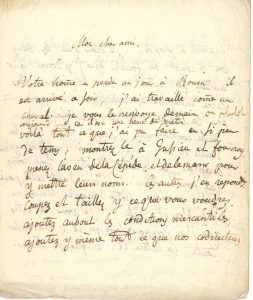 Mon cher ami,
Votre home a perdu un jour à Rouen il
est arrivé ce soir. j'ai travaillé come un
cheval je vous le renvoye demain ou plutot
voilà tout ce que j'ai pu faire en si peu
de tems, montrez le à Jussieu et fourcroy
prenez l'aveu de la Cépède et de lamarck pour
y mettre leurs noms. les autres j'en reponds
coupez et taillez y ce que vous voudrez,
ajoutez au bout les conditions mercantiles
ajoutez y même tout ce que nos coéditeurs